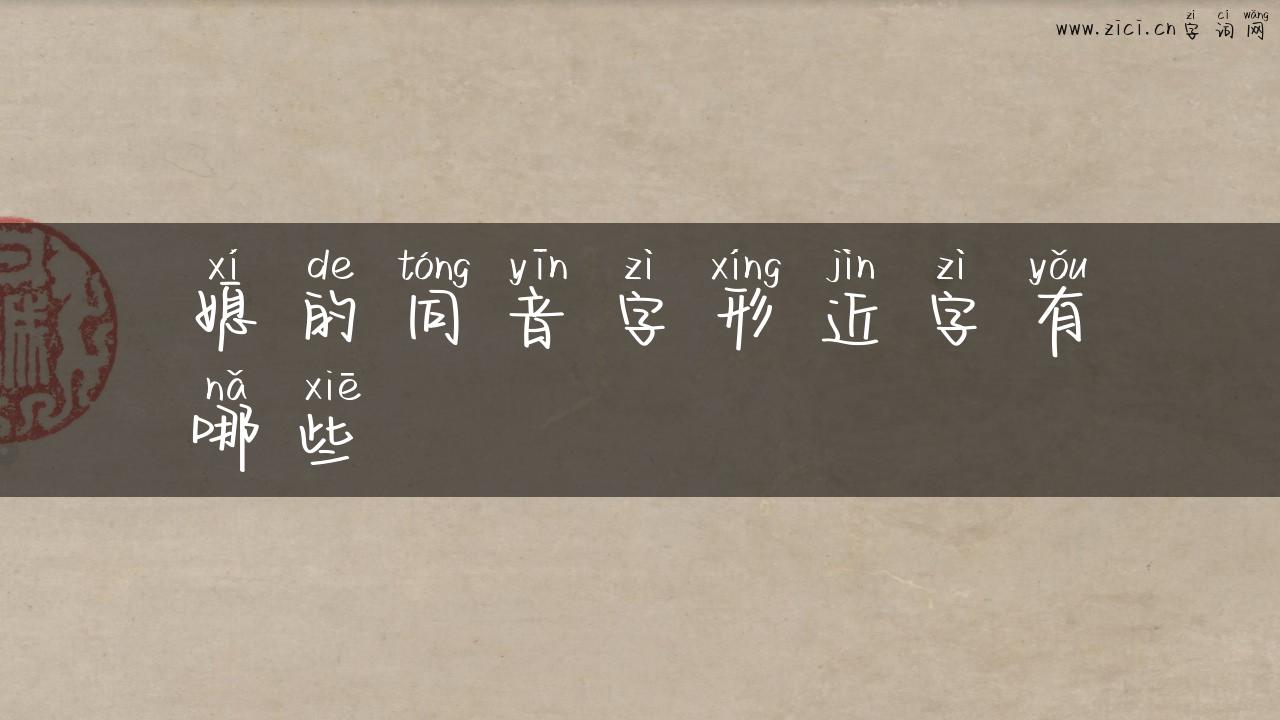 zì cí wǎng
www.zici.cn 字词网
xí de tóng yīn zì xíng jìn zì yǒu
媳的同音字形近字有
nǎ xiē
哪些